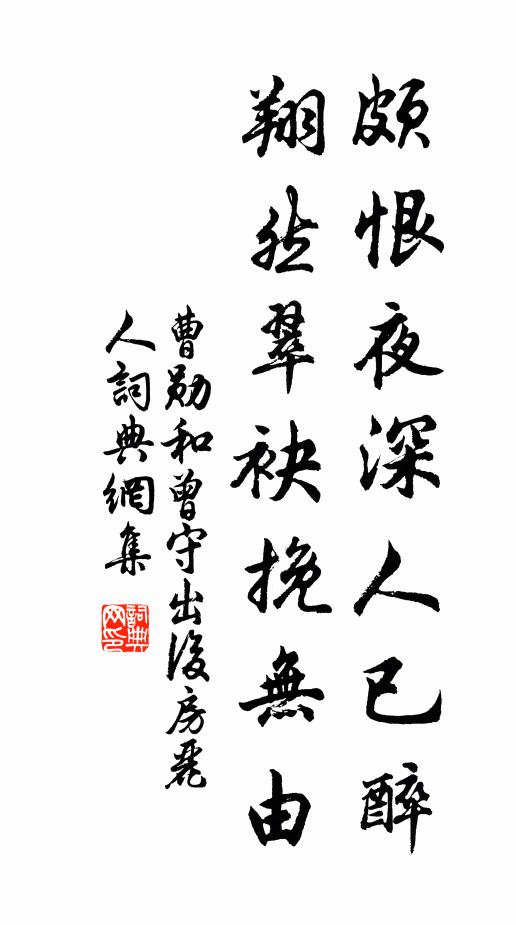 頗恨夜深人已醉
翔然翠袂挽無由
曹勛和曾守出後房麗
人詞典網集
詞典網印